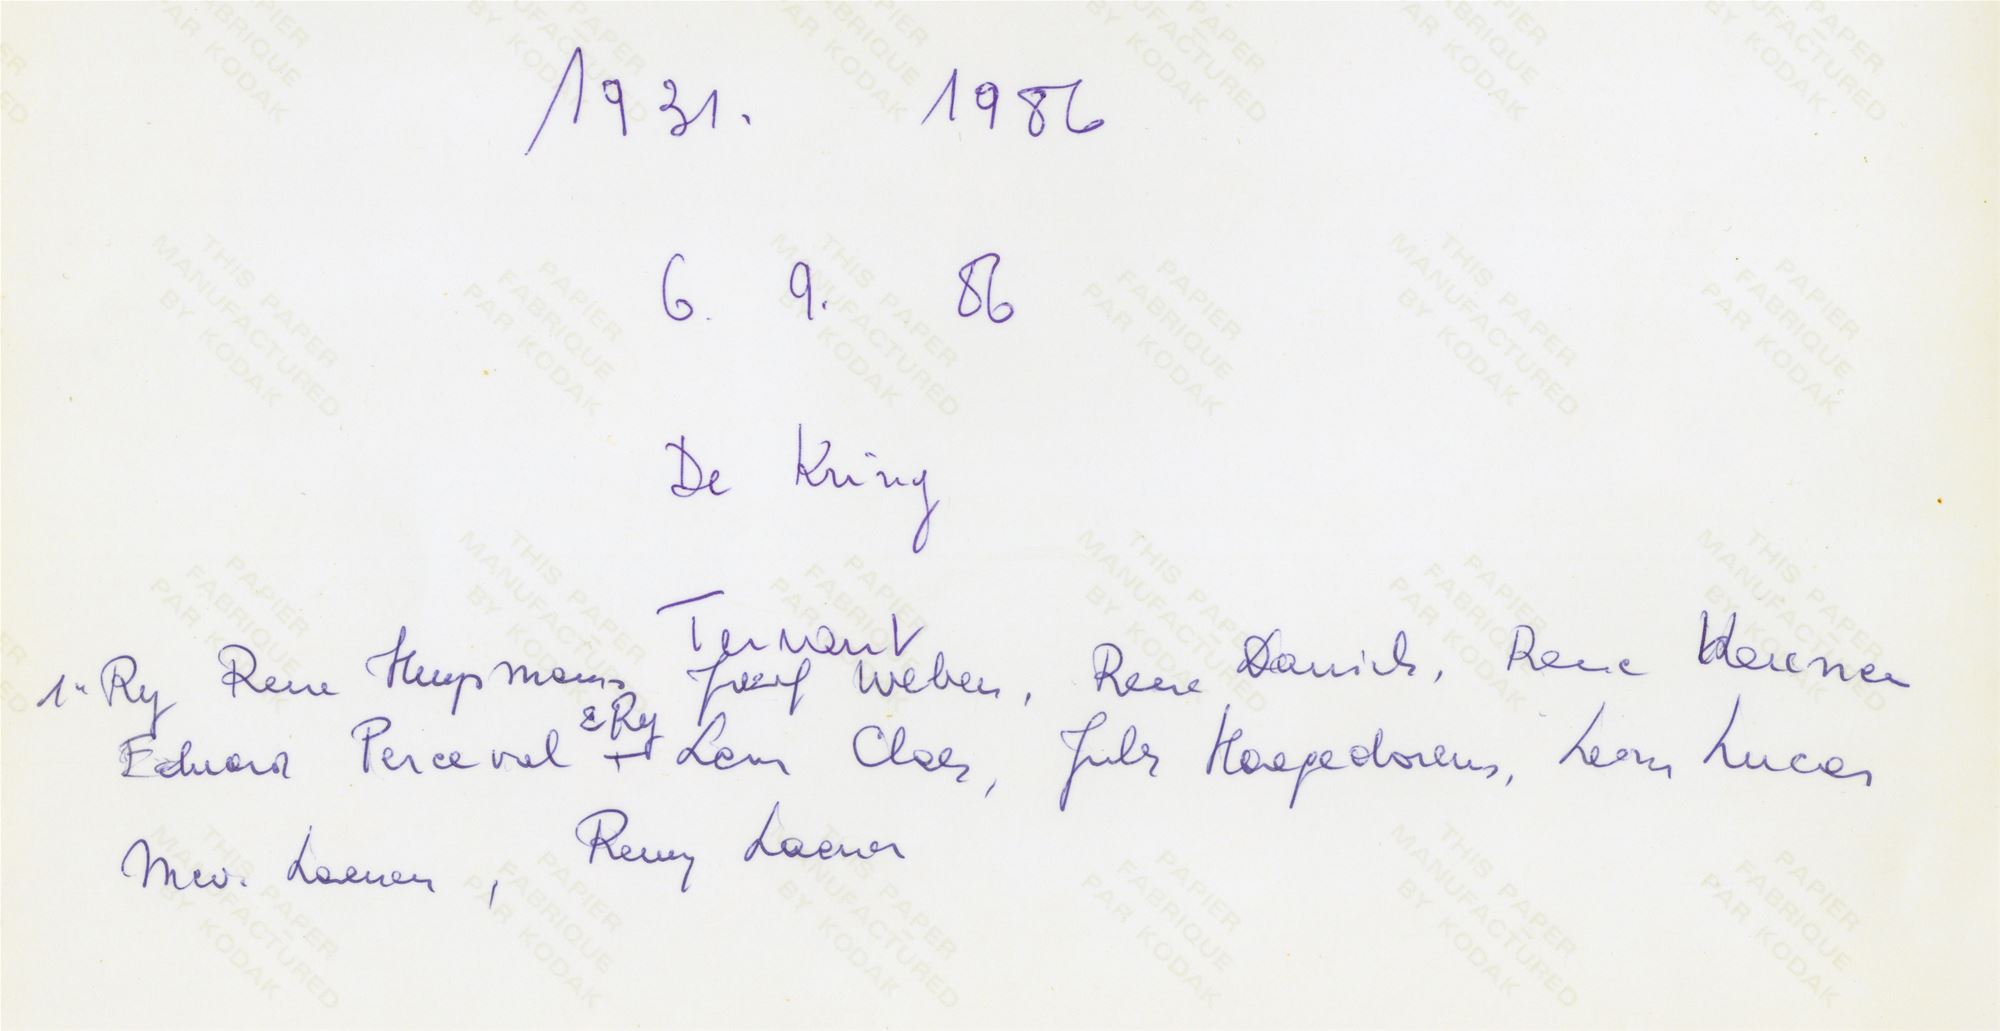 1931. 1986
6. 9. 86
De Kring
Ternant
1e Ry Rene Huypmans Jozef Weben, Rene Daniels, Rene
Eduard Perceval + 2e Ry Leon Claes, Jules Haagedorens, Leon Lucas
Mev. Laenen, Remy Laenen
THIS PAPER
MANUFACTURED
BY KODAK
PAPIER
FABRIQUE
PAR KODAK